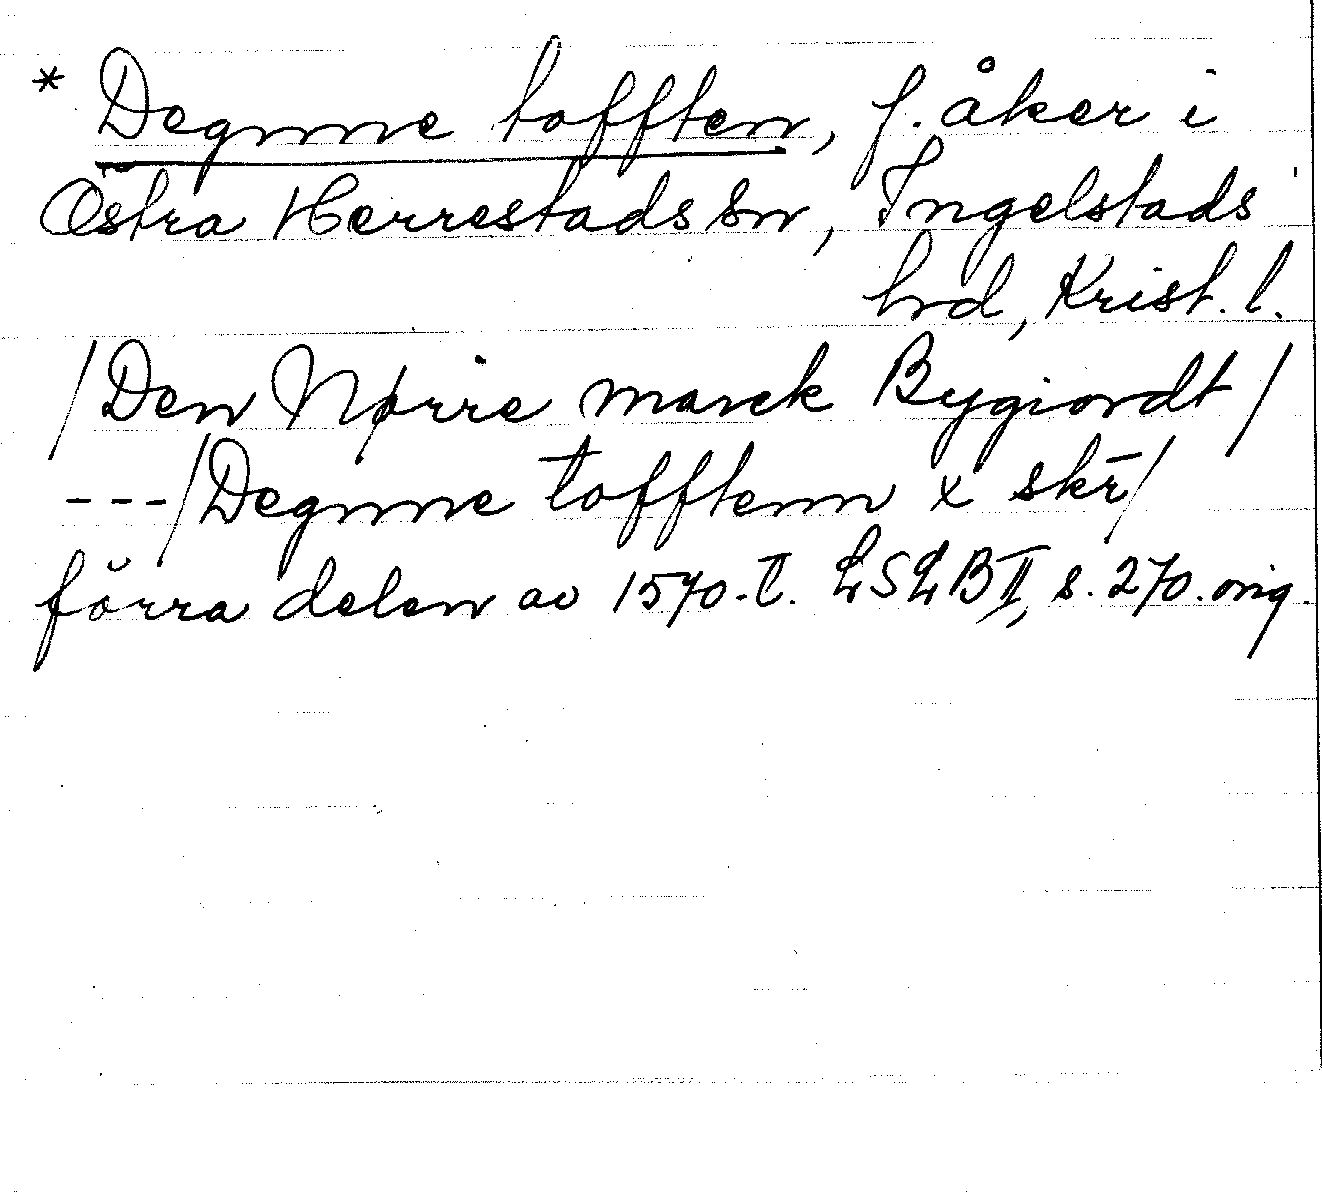 * Degnne tofften, f. åker i
Östra Herrestads sn, Ingelstads
hrd, Krist. l.
/Den Nørre marck Bygiordt/
---/Degnne tofftenn x skr̄/
förra delen av 1570-t. LSLB II, s. 270. orig.